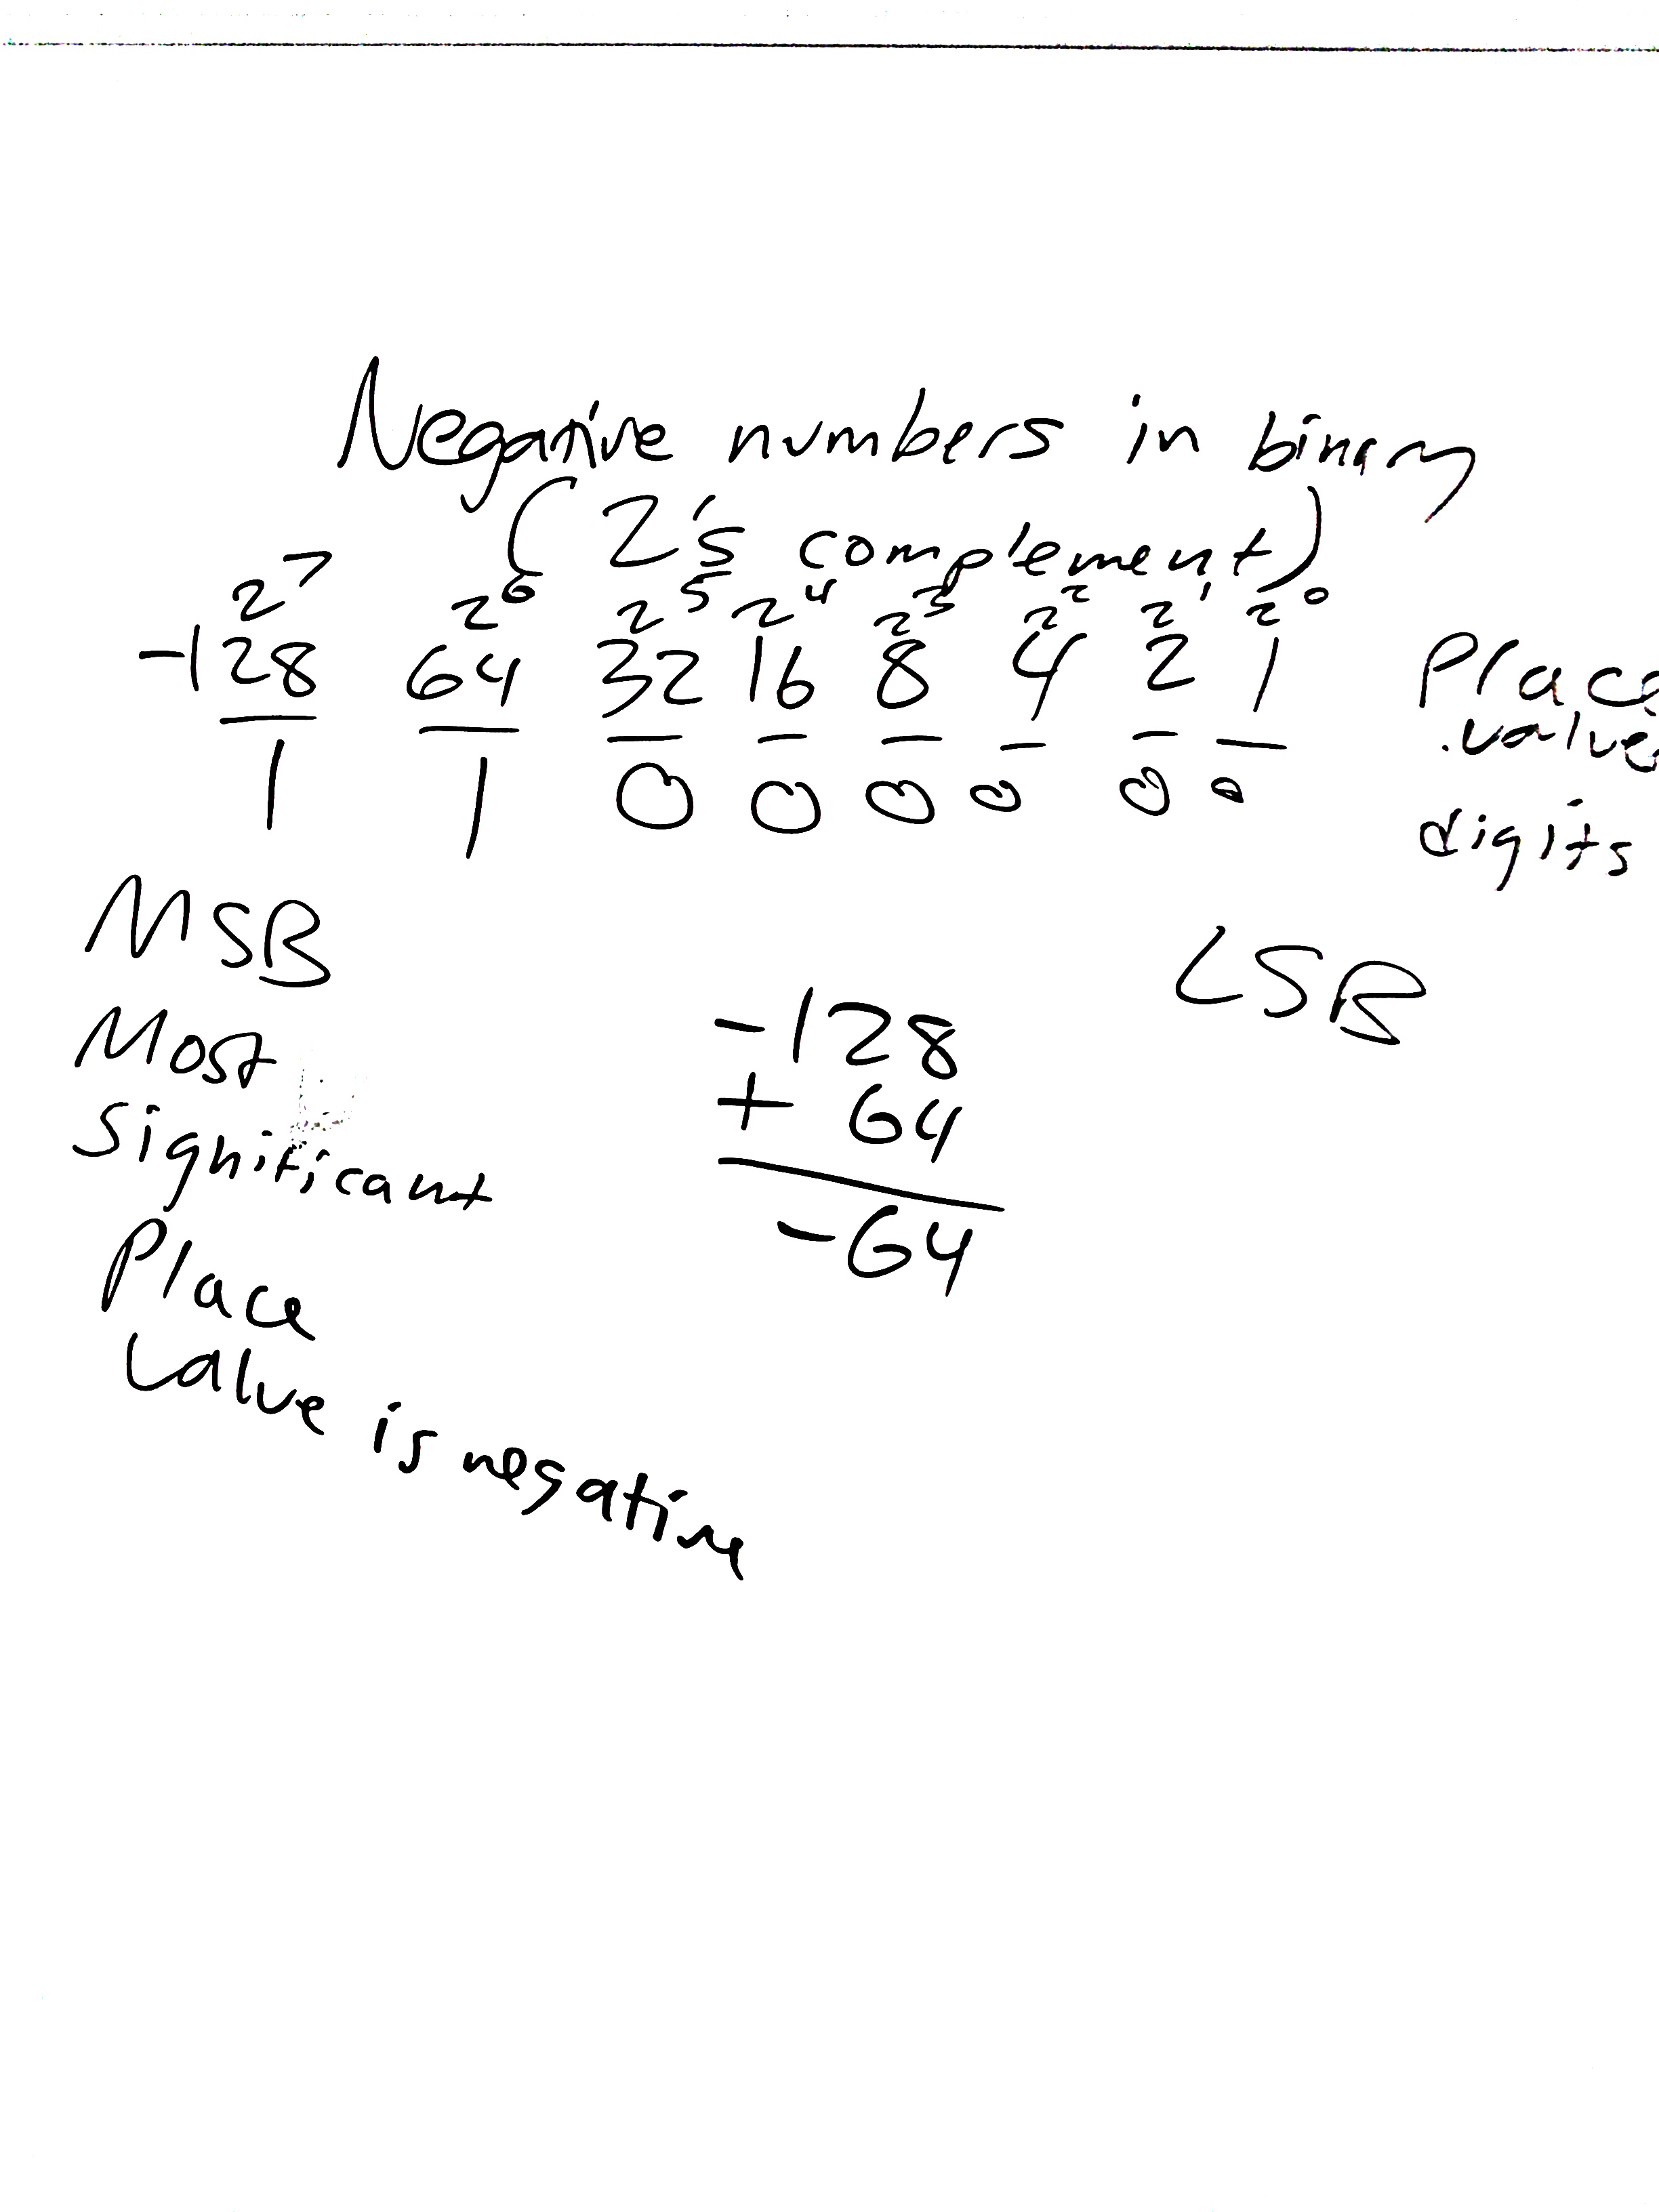 Negative numbers in binary
(2's complement)
2^7 2^6 2^5 2^4 2^3 2^2 2^1 2^0
-128 64 32 16 8 4 2 1 Place
value
1 1 0 0 0 0 0 0 digits
MSB LSB
Most
Significant
Place
Value is negative
-128
+ 64
-64